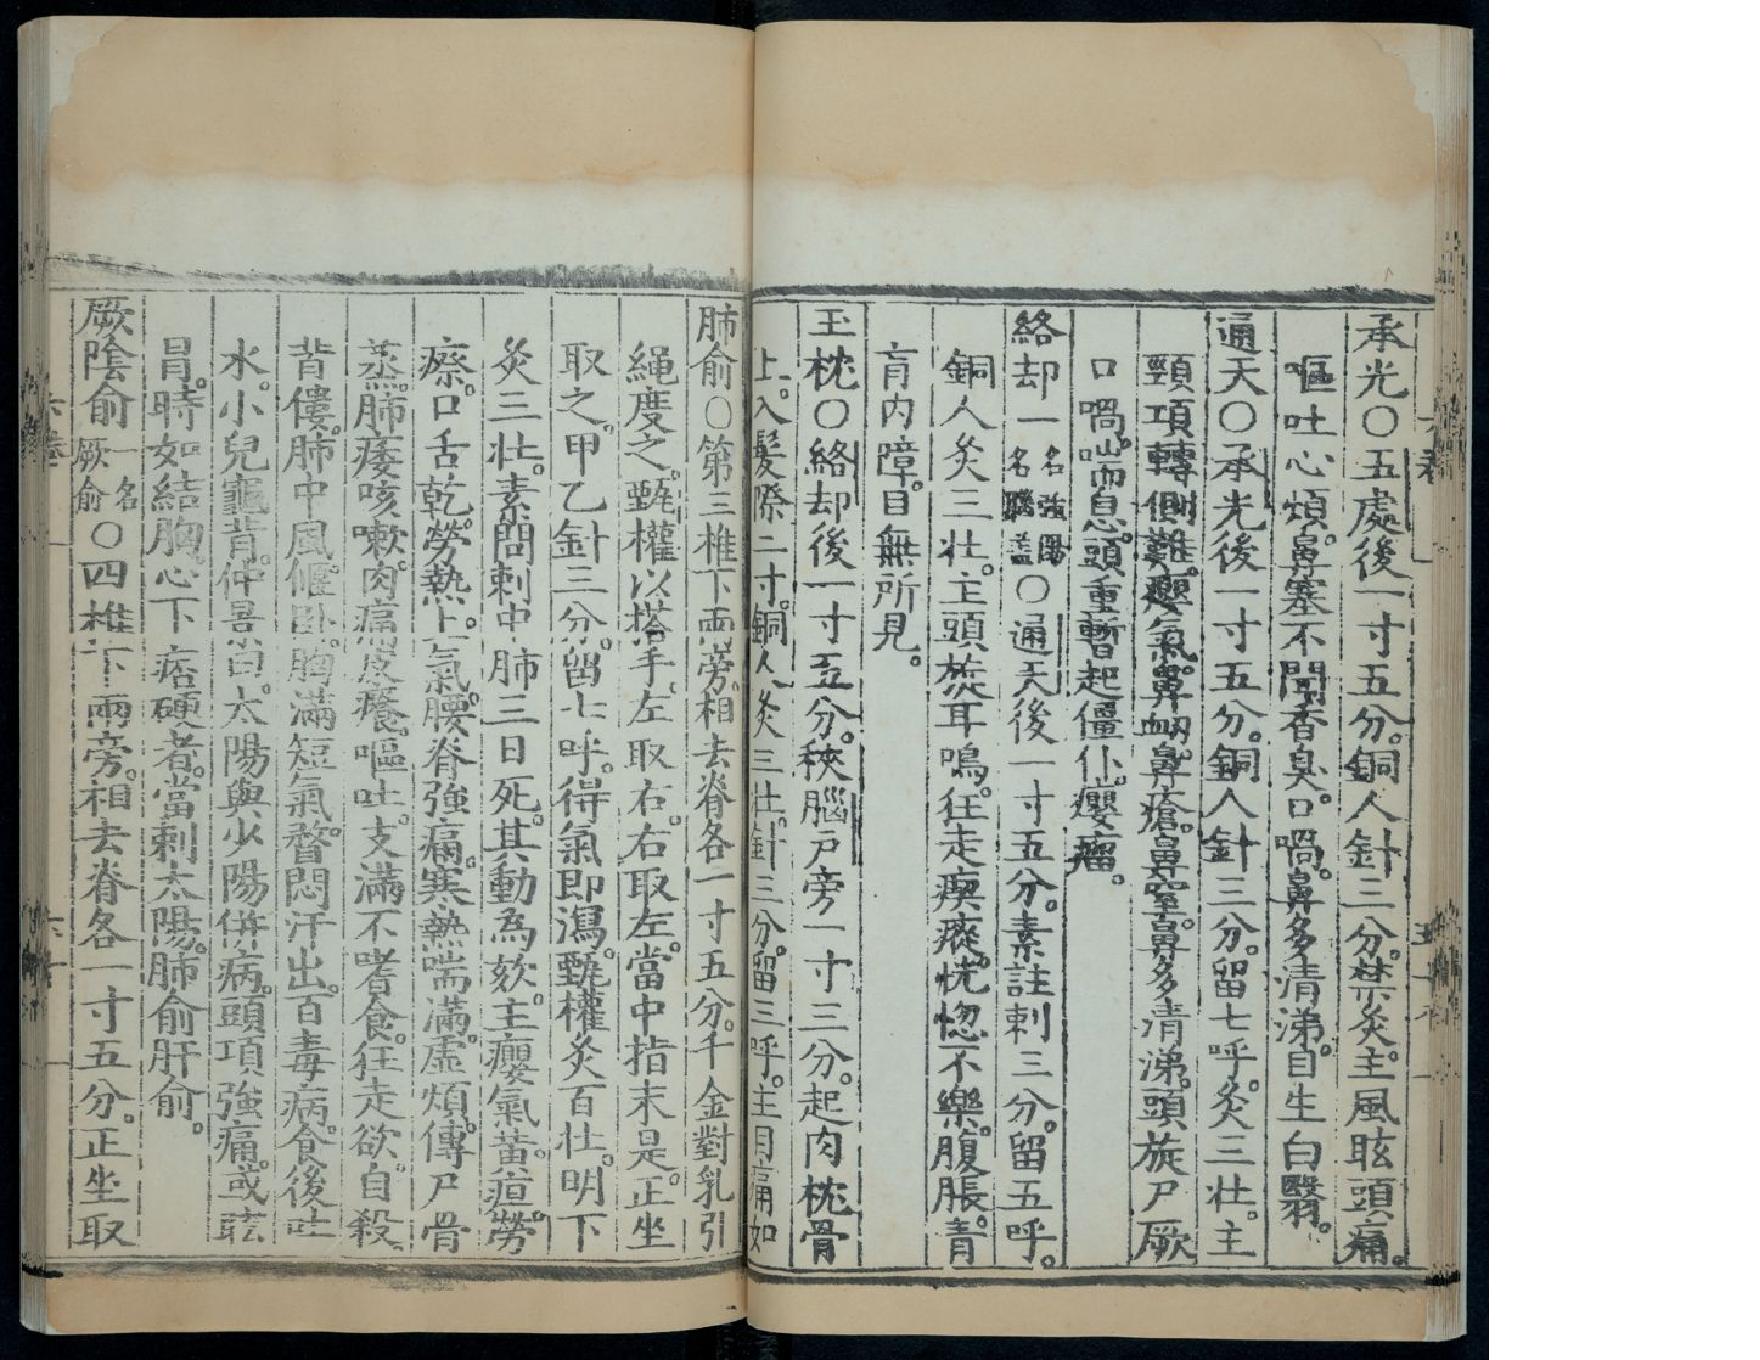 承光〇五處後一寸五分。銅人針三分。禁灸。主風眩頭痛。
嘔吐心煩。鼻塞不聞香臭。口喎。鼻多清涕。目生白翳。
通天〇承光後一寸五分。銅人針三分。留七呼。灸三壯。主
頸項轉側難。癭氣。鼻衄。鼻瘡。鼻窒。鼻多清涕。頭旋尸厥
口喎。喘息。頭重暫起僵仆。癭瘤。
絡却一名強陽一名腦盖〇通天後一寸五分。素註刺三分。留五呼。
銅人灸三壯。主頭旋耳鳴。狂走瘈瘲。恍惚不樂。腹脹。青
盲内障。目無所見。
玉枕〇絡却後一寸五分。挾腦戶旁一寸三分。起肉枕骨
上。入髮際二寸。銅人灸三壯。針三分。留三呼。主目痛如
肺俞〇第三椎下兩旁。相去脊各一寸五分。千金對乳引
繩度之。甄權以搭手。左取右。右取左。當中指末是。正坐
取之。甲乙針三分。留七呼。得氣即瀉。甄權灸百壯。明下
灸三壯。素問刺中肺三日死。其動為欬。主癭氣黃疸。勞
瘵。口舌乾。勞熱上氣。腰脊強痛。寒熱喘滿。虛煩。傳尸骨
蒸。肺痿咳嗽。肉痛皮癢。嘔吐。支滿不嗜食。狂走欲自殺。
背僂。肺中風偃臥。胸滿短氣。瞀悶汗出。百毒病。食後吐
水。小兒龜背。仲景曰。太陽與少陽併病。頭項強痛。或眩
冒。時如結胸。心下痞硬者。當刺太陽。肺俞肝俞。
厥陰俞一名厥俞〇四椎下兩旁。相去脊各一寸五分。正坐取